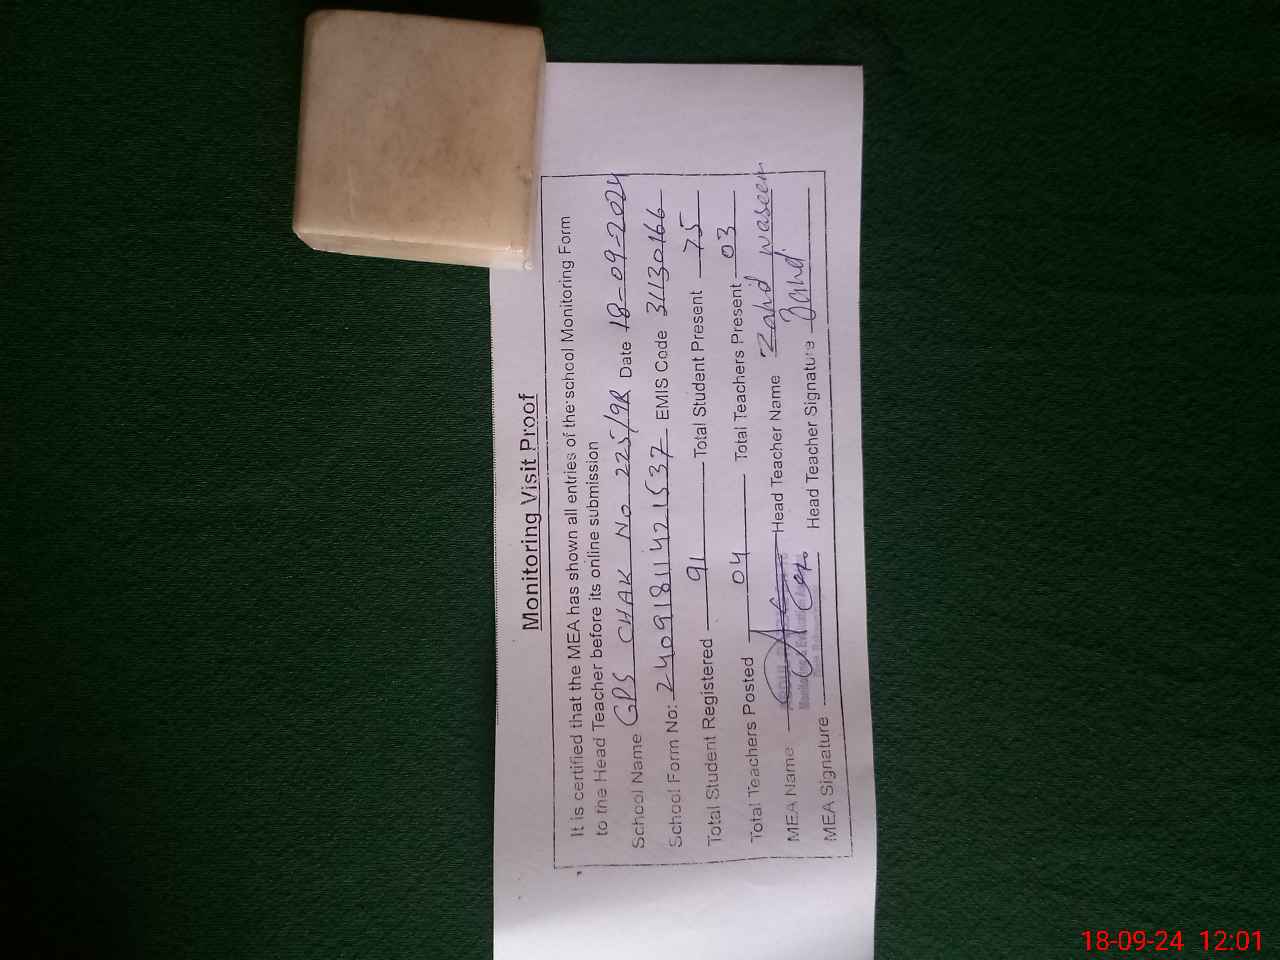 Monitoring Visit Proof
It is certified that the MEA has shown all entries of the school Monitoring Form
to the Head Teacher before its online submission
School Name GPS CHAK No 225/9R Date 18-09-2024
School Form No: 24091811421537 EMIS Code 31130166
Total Student Registered 91 Total Student Present 75
Total Teachers Posted 04 Total Teachers Present 03
MEA Name Head Teacher Name Zahid waseem
MEA Signature Head Teacher Signature Zahid
18-09-24 12:01